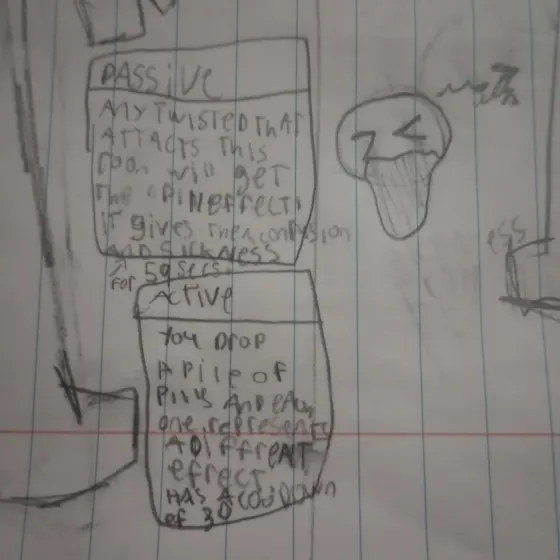 PASSiVE
ANY TWISTED THAT
ATTACTS THIS
TOON will gET
THE PIN EFFECT!
iT gives Them confusion
AND SICKNESS
FOR 50 SECS
ACTIVE
YOU DROP
A Pile OF
Pills AND EACH
one represents
A DIFFRENT
EFFECT
HAS A COOLDOWN
OF 30
ess